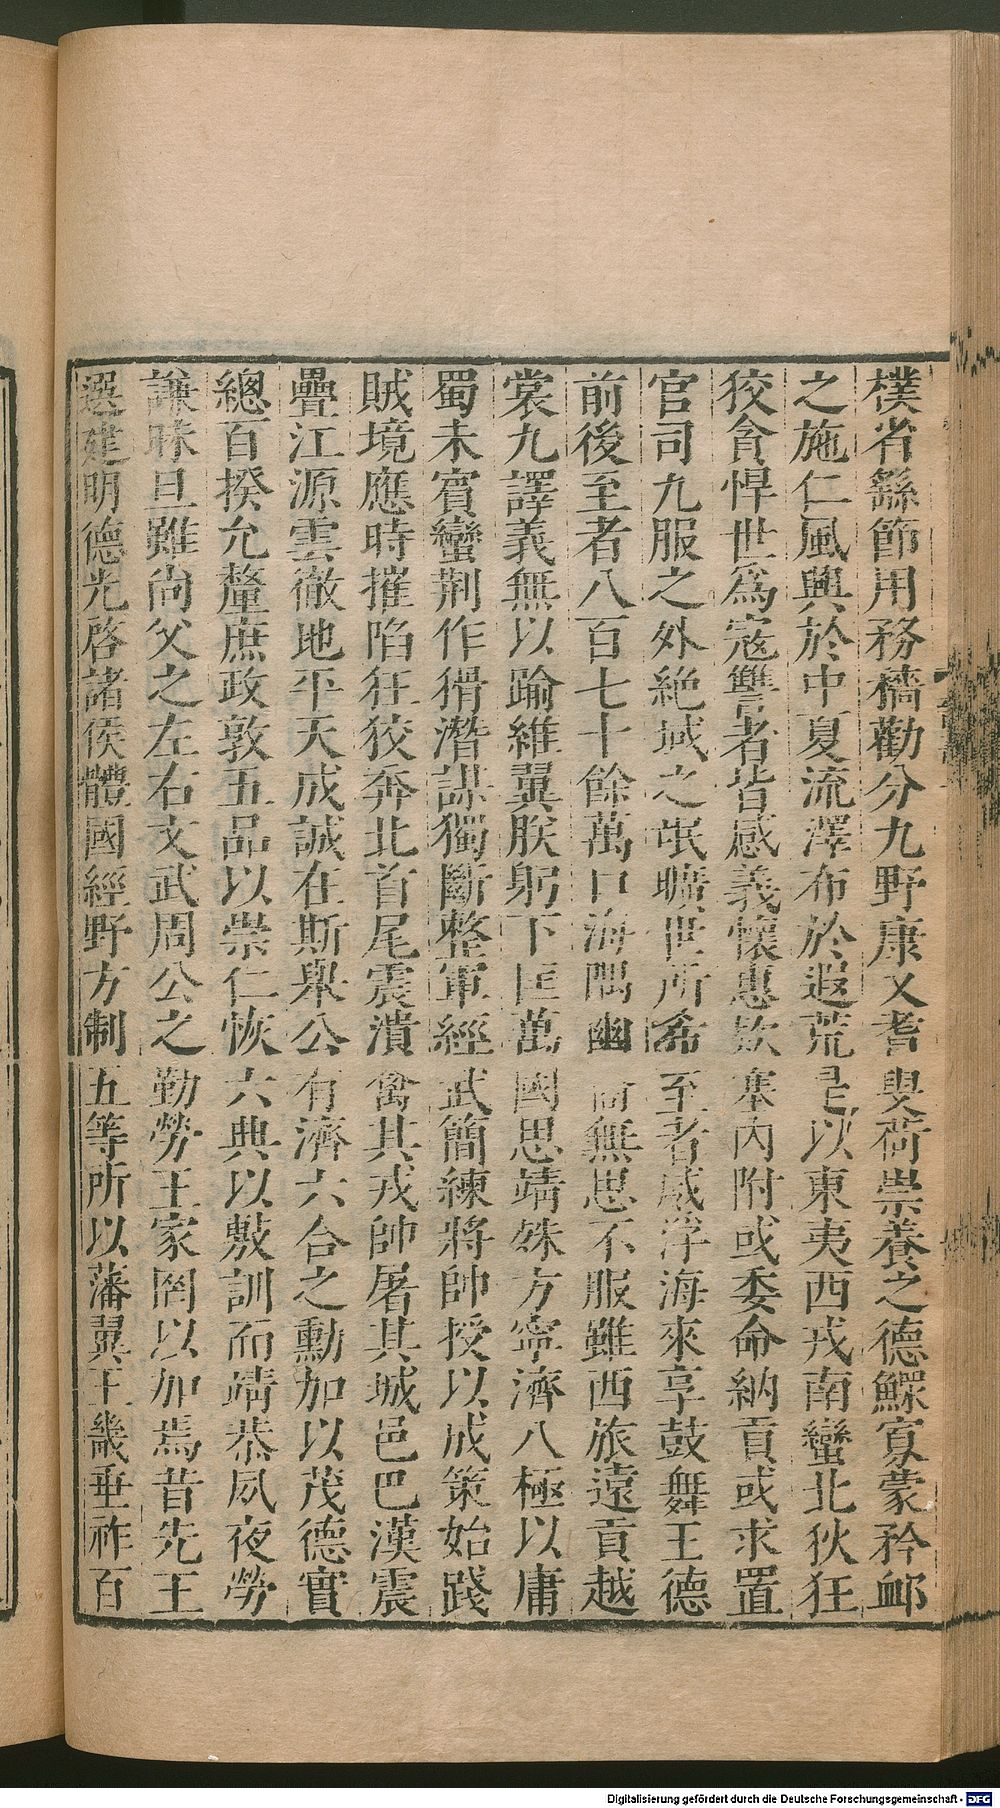 樸省繇節用務穡勸分九野康乂耆叟荷崇養之德鰥寡蒙矜䘏
之施仁風興於中夏流澤布於遐荒是以東夷西戎南蠻北狄狂
狡貪悍世爲寇讐者皆感義懷惠款塞內附或委命納貢或求置
官司九服之外絶域之氓曠世所希至者咸浮海來享鼓舞王德
前後至者八百七十餘萬口海隅幽裔無思不服雖西旅遠貢越
裳九譯義無以踰維翼朕躬下匡萬國思靖殊方寧濟八極以庸
蜀未賓蠻荆作猾潛謀獨斷整軍經武簡練將帥授以成策始踐
賊境應時摧陷狂狡奔北首尾震潰禽其戎帥屠其城邑巴漢震
疊江源雲徹地平天成誠在斯舉公有濟六合之勳加以茂德實
總百揆允釐庶政敦五品以崇仁恢六典以敷訓而靖恭夙夜勞
謙昧旦雖尚父之左右文武周公之勤勞王家罔以加焉昔先王
選建明德光啓諸侯體國經野方制五等所以藩翼王畿垂祚百
Digitalisierung gefördert durch die Deutsche Forschungsgemeinschaft - DFG